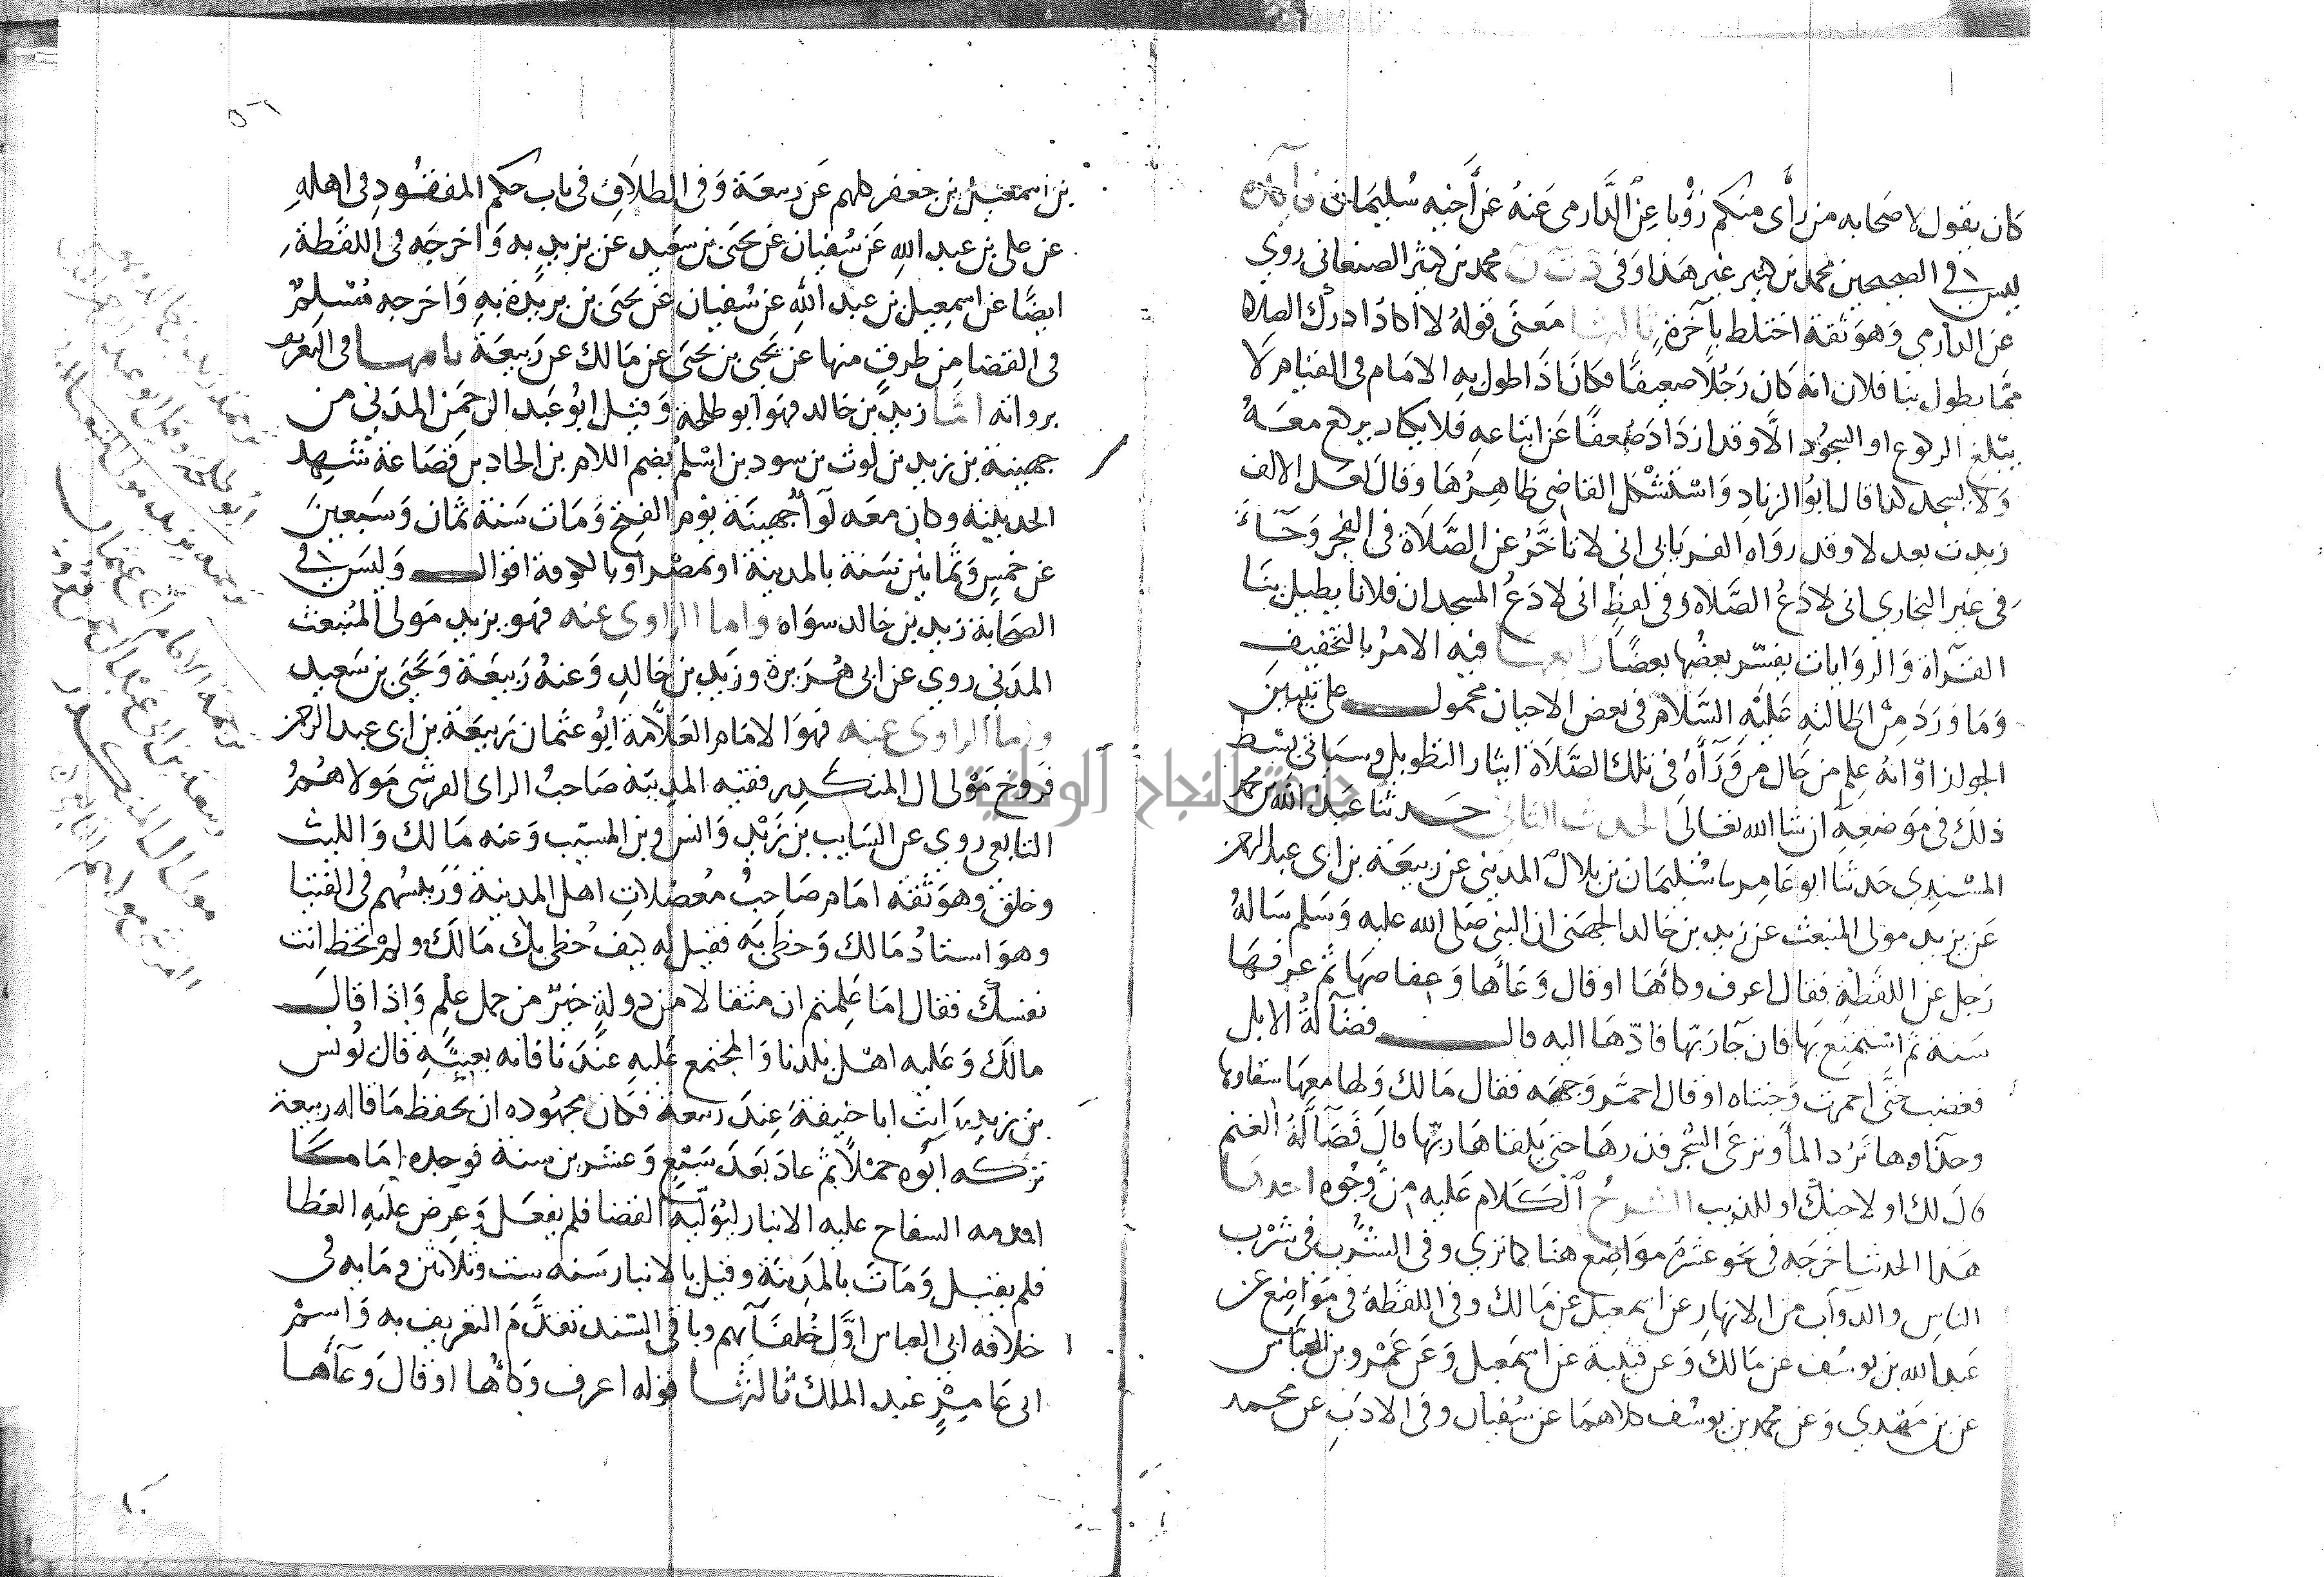 كان يقول لاصحابه من رأى منكم رؤيا عن الدارمي عنه عن أخيه سليمان بن
ليس في الصحيحين محمد بن كثير غير هذا وفي د ت ن محمد بن كثير الصنعاني روي
عن الدارمي وهو ثقة اختلط بآخرة ثالثها معنى قوله لا اكاد ادرك الصلاة
مما يطول بنا فلان انه كان رجلا ضعيفا فكان اذا طول به الامام في القيام لا
يبلغ الركوع او السجود الا وقد ازداد ضعفا عن اتباعه فلا يكاد يركع معه
ولا يسجد كذا قال ابو الزناد واستشكل القاضي ظاهرها وقال لعل الالف
زيدت بعد لا وقد رواه الفريابي اني لا تأخر عن الصلاة في الفجر وجاء
في غير البخاري اني لادع الصلاة وفي لفظ اني لادع المسجد ان فلانا يطيل بنا
القرآة والروايات يفسر بعضها بعضا رابعها فيه الامر بالتخفيف
وما ورد من اطالته عليه السلام في بعض الاحيان محمول على تبيين
الجواز او انه علم من حال من ورآه في تلك الصلاة ايثار التطويل وسياتي بسط
ذلك في موضعه ان شا الله تعالى الحديث الثاني حدثنا عبد الله بن محمد
المسندي حدثنا ابو عامر نا سليمان بن بلال المديني عن ربيعة بن ابي عبد الرحمن
عن يزيد مولى المنبعث عن زيد بن خالد الجهني ان النبي صلى الله عليه وسلم ساله
رجل عن اللقطة فقال اعرف وكاها او قال وعاها وعفاصها ثم عرفها
سنة ثم استمتع بها فان جآ ربها فادها اليه قال فضآلة الابل
فغضب حتى احمرت وجنتاه او قال احمر وجهه فقال مالك ولها معها سقاوها
وحذاوها ترد الماء وترعى الشجر فذرها حتى يلقاها ربها قال فضآلة الغنم
قال لك او لاخيك او للذيب الشرح الكلام عليه من وجوه احدها
هذا الحديث اخرجه في نحو عشرة مواضع هنا كما ترى وفي الشرب في شرب
الناس والدوآب من الانهار عن اسمعيل عن مالك وفي اللقطة في مواضع عن
عبد الله بن يوسف عن مالك وعن قتيبة عن اسمعيل وعن عمرو بن العباس
عن بن مهدي وعن محمد بن يوسف كلاهما عن سفيان وفي الادب عن محمد
بن اسمعيل بن جعفر كلهم عن ربيعة وفي الطلاق في باب حكم المفقود في اهله
عن علي بن عبد الله عن سفيان عن يحيى بن سعيد عن يزيد به واخرجه في اللقطة
ايضا عن اسمعيل بن عبد الله عن سفيان عن يحيى بن يزيد به واخرجه مسلم
في القضا من طرق منها عن يحيى بن يحيى عن مالك عن ربيعة ثانيها في التعريف
برواته اما زيد بن خالد فهو ابو طلحة وقيل ابو عبد الرحمن المدني من
جهينة بن زيد بن لوث بن سود بن اسلم بضم اللام بن الحاد بن قضاعة شهد
الحديبية وكان معه لوآ جهينة يوم الفتح ومات سنة ثمان وسبعين
عن خمس وثمانين سنة بالمدينة او بمصر او بالكوفة اقوال وليس في
الصحابة زيد بن خالد سواه واما الراوي عنه فهو يزيد مولى المنبعث
المدني روي عن ابي هريرة وزيد بن خالد وعنه ربيعة ويحيى بن سعيد
واما الراوي عنه فهو الامام العلامة ابو عثمان ربيعة بن ابي عبد الرحمن
فروخ مولى ال المنكدر فقيه المدينة صاحب الراي القرشي مولاهم
التابعي روي عن السايب بن زيد وانس وبن المسيب وعنه مالك والليث
وخلق وهو ثقة امام صاحب معضلات اهل المدينة وريسهم في الفتيا
وهو استاد مالك وحظي به فقيل له كيف حظي بك مالك ولم تحظ انت
نفسك فقال اما علمتم ان مثقالا من دولة خير من حمل علم واذا قال
مالك وعليه اهل بلدنا والمجتمع عليه عندنا فانه بعينه قال يونس
بن يزيد رايت ابا حنيفة عند ربيعة فكان مجهوده ان يحفظ ما قاله ربيعة
تركه ابوه حملا ثم عاد بعد سبع وعشرين سنة فوجده اماما
اقدمه السفاح عليه الانبار ليوليه القضا فلم يفعل وعرض عليه العطا
فلم يقبل ومات بالمدينة وقيل بالانبار سنه ست وثلاثين ومايه في
خلافه ابي العباس اول خلفآيهم وباقي السند تقدم التعريف به واسم
ابي عامر عبد الملك ثالثها قوله اعرف وكاها او قال وعآها